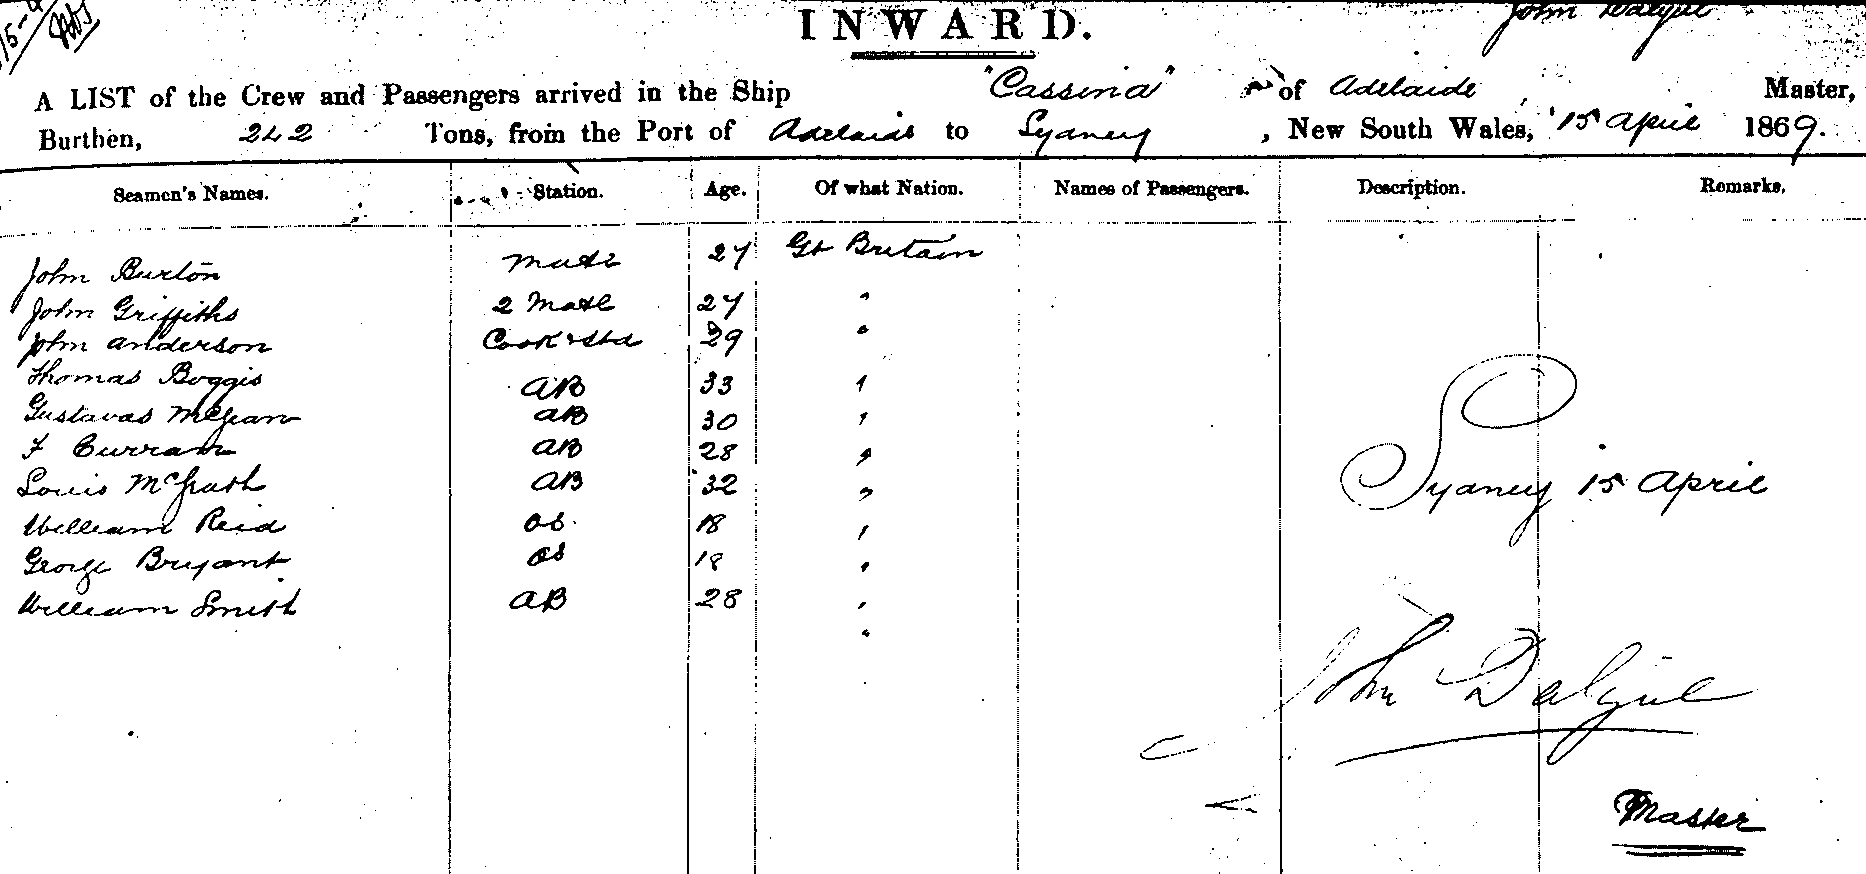 15-4
INWARD.
John Dalgul
A LIST of the Crew and Passengers arrived in the Ship "Cassina" of Adelaide, Master,
Burthen, 242 Tons, from the Port of Adelaide to Sydney, New South Wales, 15 April 1869.
Seamen's Names. Station. Age. Of what Nation. Names of Passengers. Description. Remarks.
John Burton Mate 27 Gt Britain
John Griffiths 2 Mate 27 "
John Anderson Cook & Std 29 "
Thomas Boggis AB 33 "
Gustavas McGean AB 30 "
F Curran AB 28 "
Louis McGrath AB 32 "
William Reid OS 18 "
George Bryant OS 18 "
William Smith AB 28 "
"
Sydney 15 April
John Dalgul
Master